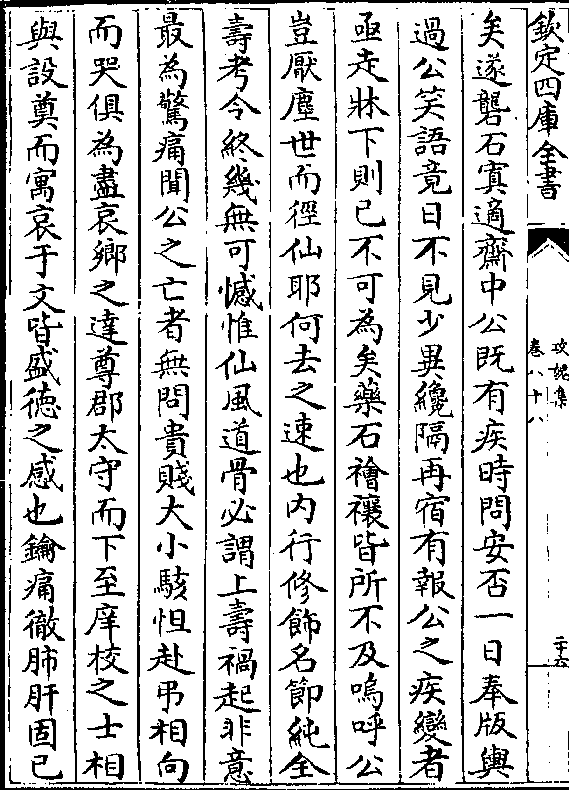 欽定四庫全書
攻媿集
卷八十八
二十六
矣遂礱石寘適齋中公既有疾時問安否一日奉版輿
過公笑語竟日不見少異纔隔再宿有報公之疾變者
亟走牀下則已不可為矣藥石禬禳皆所不及嗚呼公
豈厭塵世而徑仙耶何去之速也内行修飾名節純全
壽考令終幾無可憾惟仙風道骨必謂上壽禍起非意
最為驚痛聞公之亡者無問貴賤大小駭怛赴弔相向
而哭俱為盡哀鄉之達尊郡太守而下至庠校之士相
與設奠而寓哀于文皆盛徳之感也鑰痛徹肺肝固已